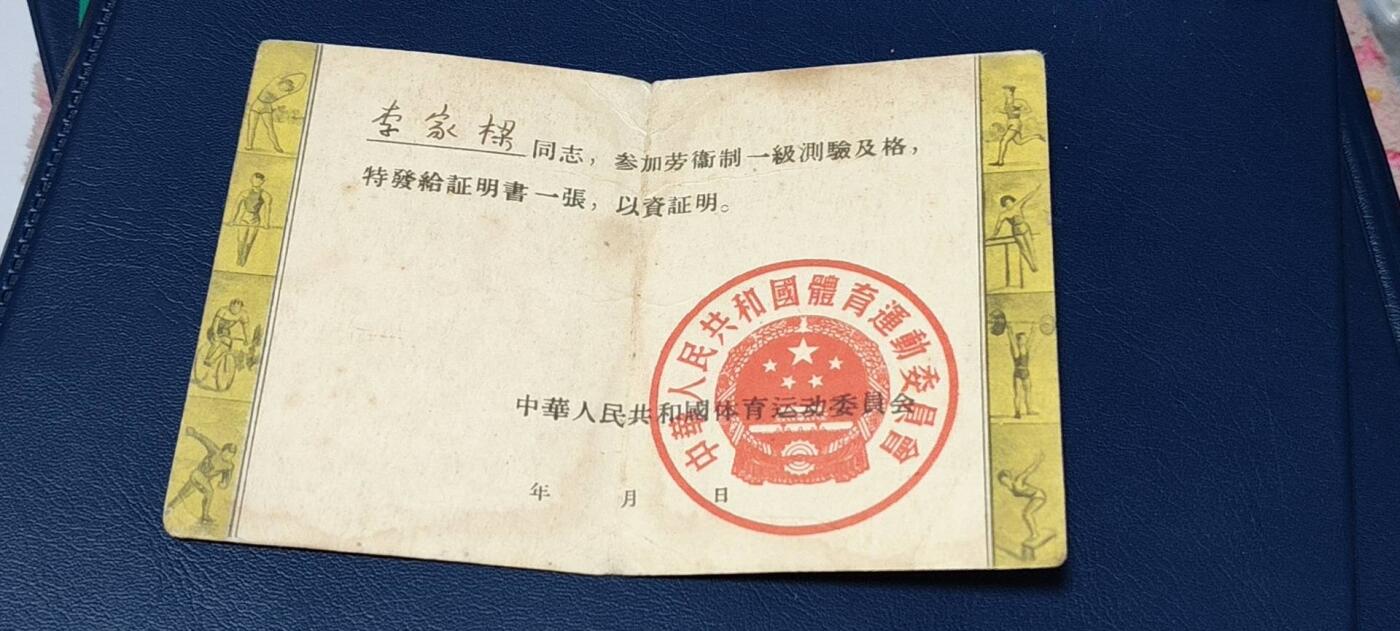 李家樑同志，参加劳衞制一級測驗及格，
特發給証明書一張，以資証明。
中華人民共和國体育运动委員会
年 月 日
中華人民共和國體育運動委員會